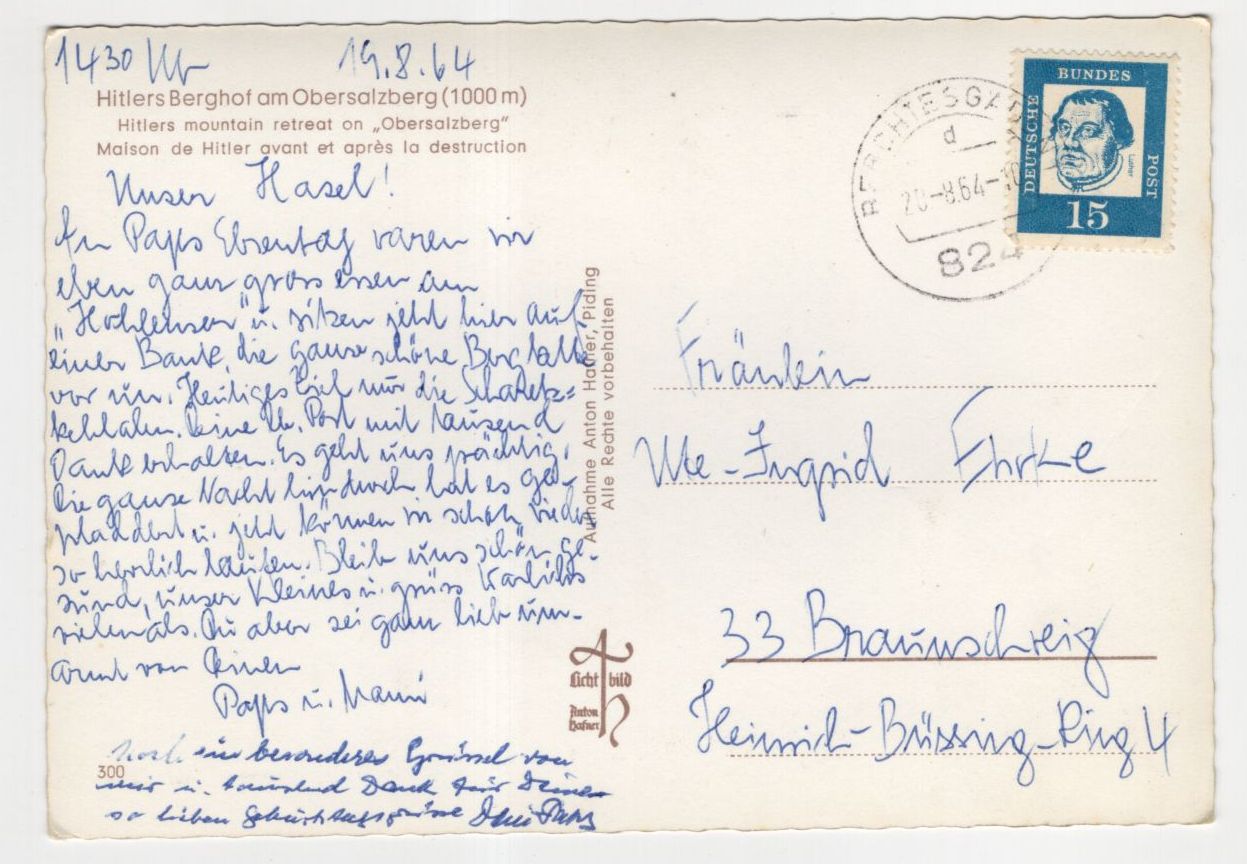 1430 Uhr 19.8.64
Hitlers Berghof am Obersalzberg (1000 m)
Hitlers mountain retreat on „Obersalzberg"
Maison de Hitler avant et après la destruction
Unser Hasel!
An Paps Ehrentag waren wir
eben ganz gross essen am
u. sitzen jetzt hier auf
einer Bank, die ganze schöne Bergkette
vor uns. Heutiges Ziel nur die
Deine lb. Post mit tausend
Dank erhalten. Es geht uns prächtig.
Die ganze Nacht hindurch hat es ge-
pladdert u. jetzt können wir schon wieder
so herrlich laufen. Bleib uns schön ge-
sund, unser Kleines u. grüss
vielmals. Du aber sei ganz lieb um-
armt von Deinen
Paps u. Mami
Noch ein besonderes Grüssel von
mir u. tausend Dank für Deine
so lieben Geburtstagsgrüsse Dein Paps
300
Aufnahme Anton Hafner, Piding
Alle Rechte vorbehalten
Licht bild
Anton
Hafner
BERCHTESGADEN
d
20-8.64-10
824
BUNDES
DEUTSCHE
POST
Luther
15
Fräulein
Ute-Ingrid Ehrke
33 Braunschweig
Heinrich-Büssing-Ring 4